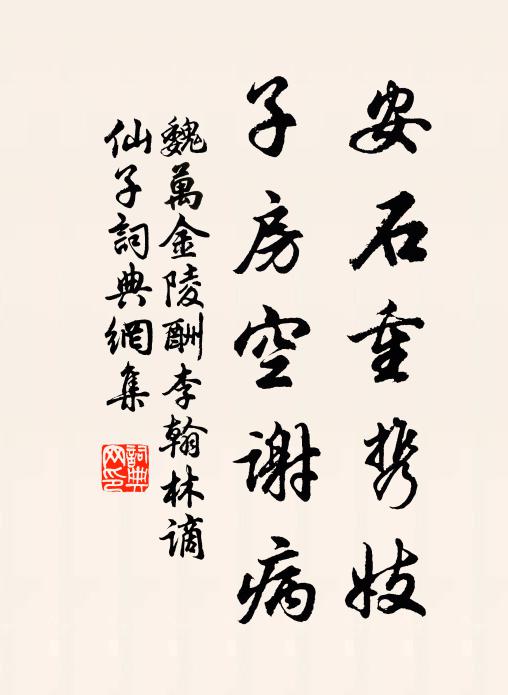 安石重携妓
子房空谢病
魏萬金陵酬李翰林謫
仙子詞典網集
詞典网印